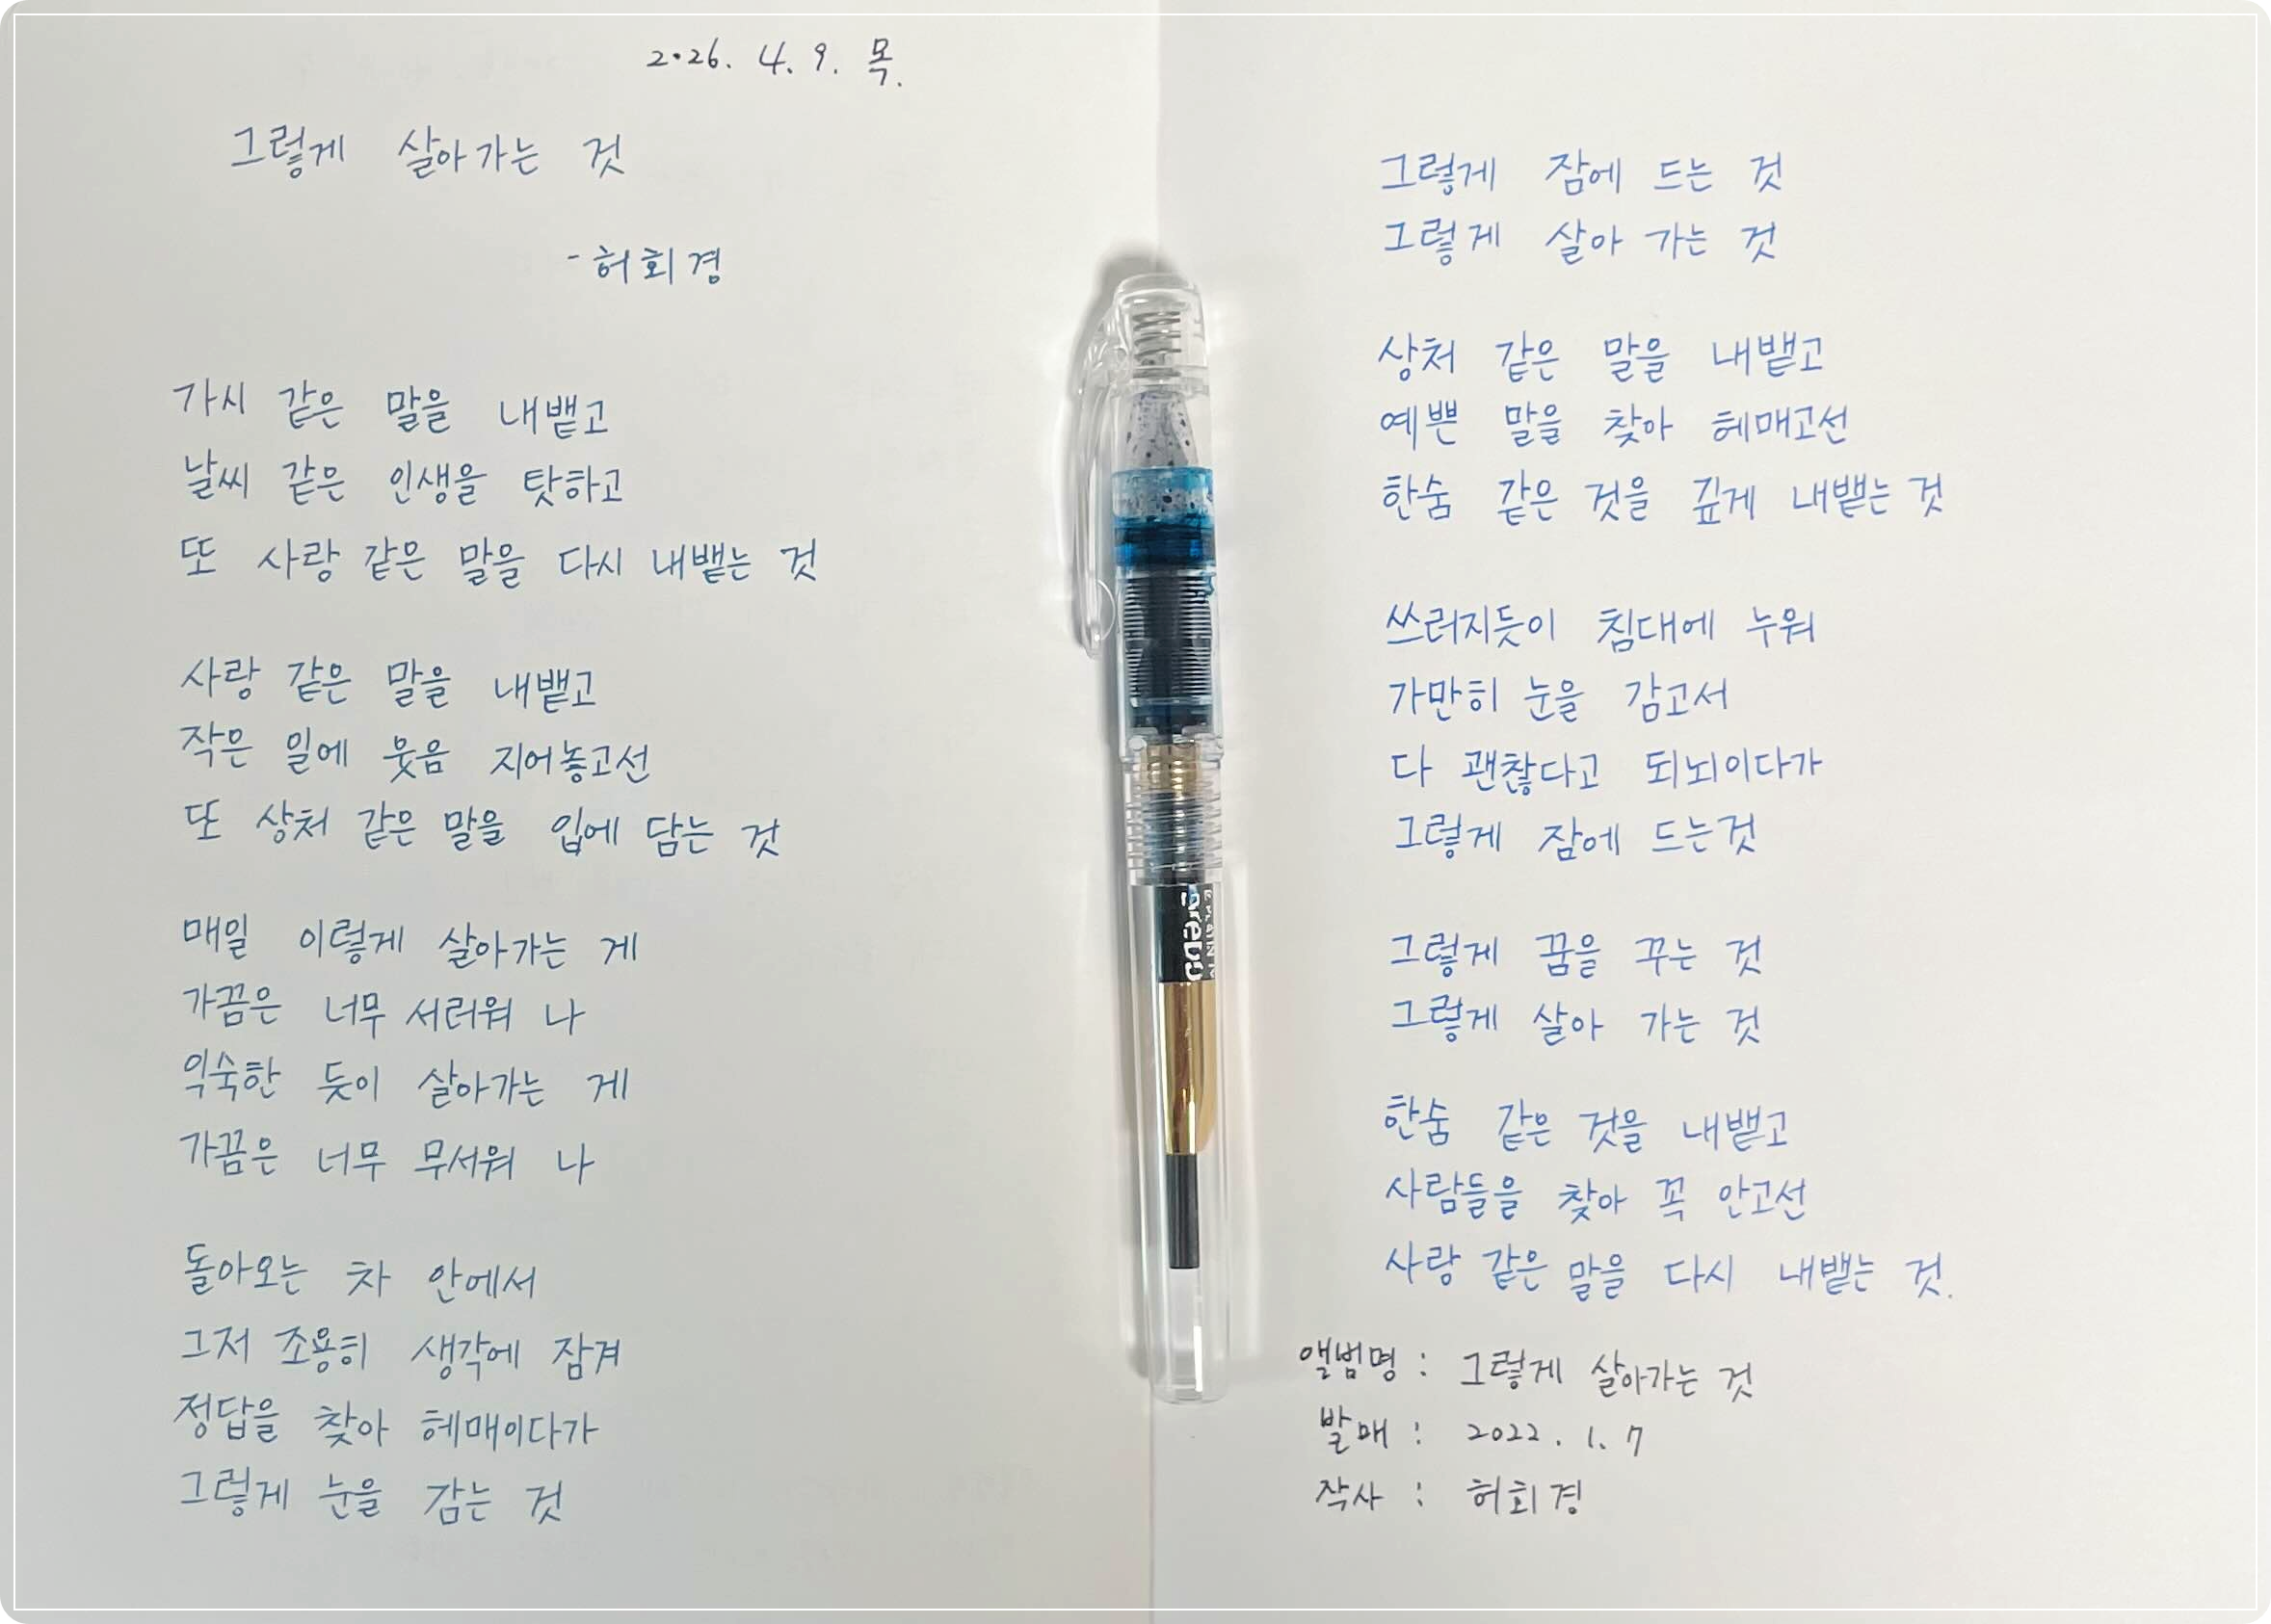 2026. 4. 9. 목.
그렇게 살아가는 것
- 허회경
가시 같은 말을 내뱉고
날씨 같은 인생을 탓하고
또 사랑 같은 말을 다시 내뱉는 것
사랑 같은 말을 내뱉고
작은 일에 웃음 지어놓고선
또 상처 같은 말을 입에 담는 것
매일 이렇게 살아가는 게
가끔은 너무 서러워 나
익숙한 듯이 살아가는 게
가끔은 너무 무서워 나
돌아오는 차 안에서
그저 조용히 생각에 잠겨
정답을 찾아 헤매이다가
그렇게 눈을 감는 것
그렇게 잠에 드는 것
그렇게 살아 가는 것
상처 같은 말을 내뱉고
예쁜 말을 찾아 헤매고선
한숨 같은 것을 깊게 내뱉는 것
쓰러지듯이 침대에 누워
가만히 눈을 감고서
다 괜찮다고 되뇌이다가
그렇게 잠에 드는것
그렇게 꿈을 꾸는 것
그렇게 살아 가는 것
한숨 같은 것을 내뱉고
사람들을 찾아 꼭 안고선
사랑 같은 말을 다시 내뱉는 것.
앨범명 : 그렇게 살아가는 것
발매 : 2022. 1. 7
작사 : 허회경
preppy